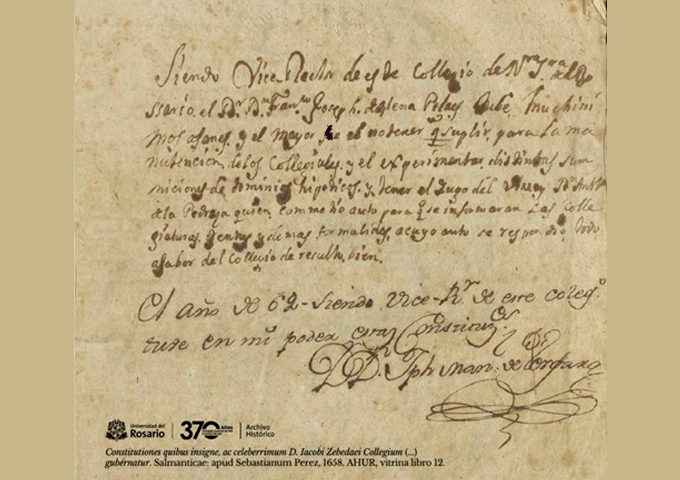 Siendo Vice Rector de este Collegio de Nra Sra del Ro
sario, el Dr. Dn. Franco Joseph. de Mena Pelaez tube, muchisi
mos afanes, y el mayor fue el no tener q suplir, para la ma
nutencion, de los Collegiales, y el experimentar, distintas sum
miciones de dominios hipoticos. y tener el Jugo del Virrey Dn Anto
de la Pedroza quien, como me hio auto para q se informaran Las Colle
giaturas, Rentas y demas formalidades, a cuyo auto se respondio, todo
a fabor del Collegio de resulto, bien.
El año de 62 - siendo Vice-Rr de este coleg.
tube en mi poder estas Constitus.es
D. D. Jph Man. de
Universidad del
Rosario
370 Años
Archivo
Histórico
Constitutiones quibus insigne, ac celeberrimum D. Iacobi Zebedaei Collegium (...)
gubernatur. Salmanticae: apud Sebastianum Perez, 1658. AHUR, vitrina libro 12.